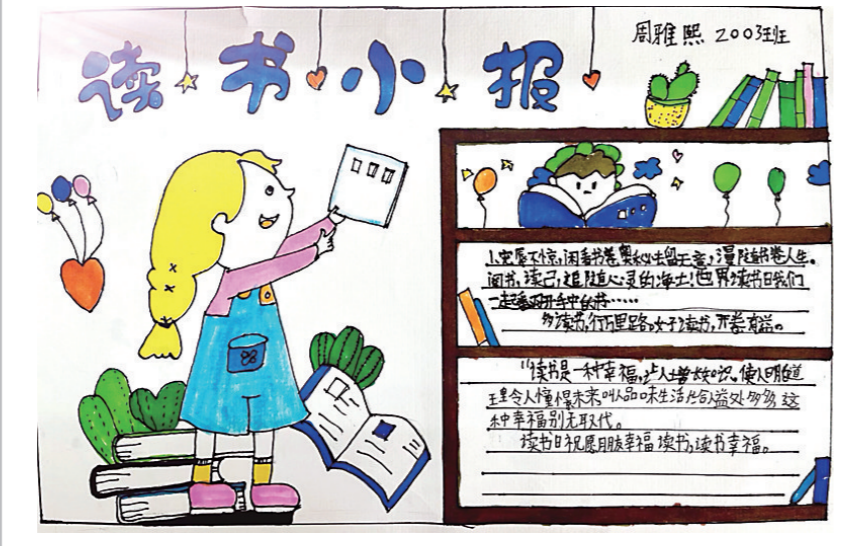 读书小报
周雅熙 2003班
1.宠辱不惊,闲看书卷奥秘,去留无意,漫随书卷人生。
阅书,读己,追随心灵的净土!世界读书日我们
一起翻开手中的书……
多读书,行万里路。女子读书,开卷有益。
"读书是一种幸福,让人增长知识。使人明道
理令人憧憬未来,叫人品味生活,给人益处多多 这
种幸福别无取代。
读书日祝愿朋友幸福读书,读书幸福。